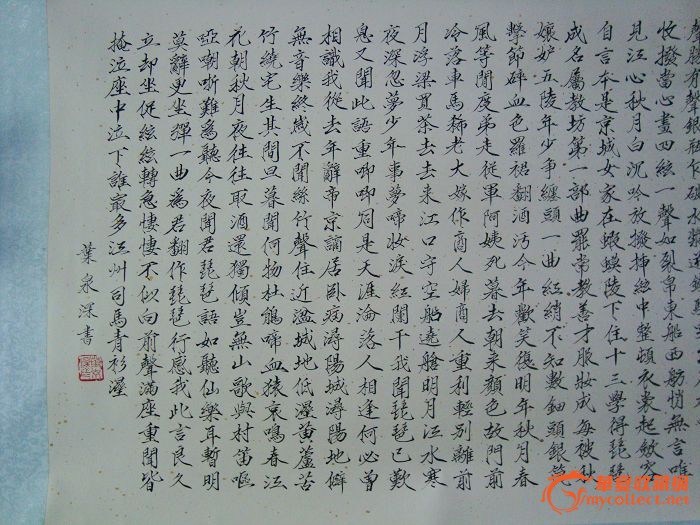 聲銀瓶乍破
收撥當心畫四絃一聲如裂帛東船西舫悄無言唯
見江心秋月白沉吟放撥插絃中整頓衣裳起斂容
自言本是京城女家在蝦蟆陵下住十三學得琵琶
成名屬教坊第一部曲罷常教善才服妝成每被秋
孃妒五陵年少爭纏頭一曲紅綃不知數鈿頭銀篦
擊節碎血色羅裙翻酒污今年歡笑復明年秋月春
風等閒度弟走從軍阿姨死暮去朝來顏色故門前
冷落車馬稀老大嫁作商人婦商人重利輕別離前
月浮梁買茶去去來江口守空船遶艙明月江水寒
夜深忽夢少年事夢啼妝淚紅闌干我聞琵琶已歎
息又聞此語重唧唧同是天涯淪落人相逢何必曾
相識我從去年辭帝京謫居臥病潯陽城潯陽地僻
無音樂終歲不聞絲竹聲住近湓城地低溼黃蘆苦
竹繞宅生其間旦暮聞何物杜鵑啼血猿哀鳴春江
花朝秋月夜往往取酒還獨傾豈無山歌與村笛嘔
啞嘲哳難為聽今夜聞君琵琶語如聽仙樂耳暫明
莫辭更坐彈一曲為君翻作琵琶行感我此言良久
立却坐促絃絃轉急悽悽不似向前聲滿座重聞皆
掩泣座中泣下誰最多江州司馬青衫溼
葉泉深書
華夏收藏網
mycollect.net